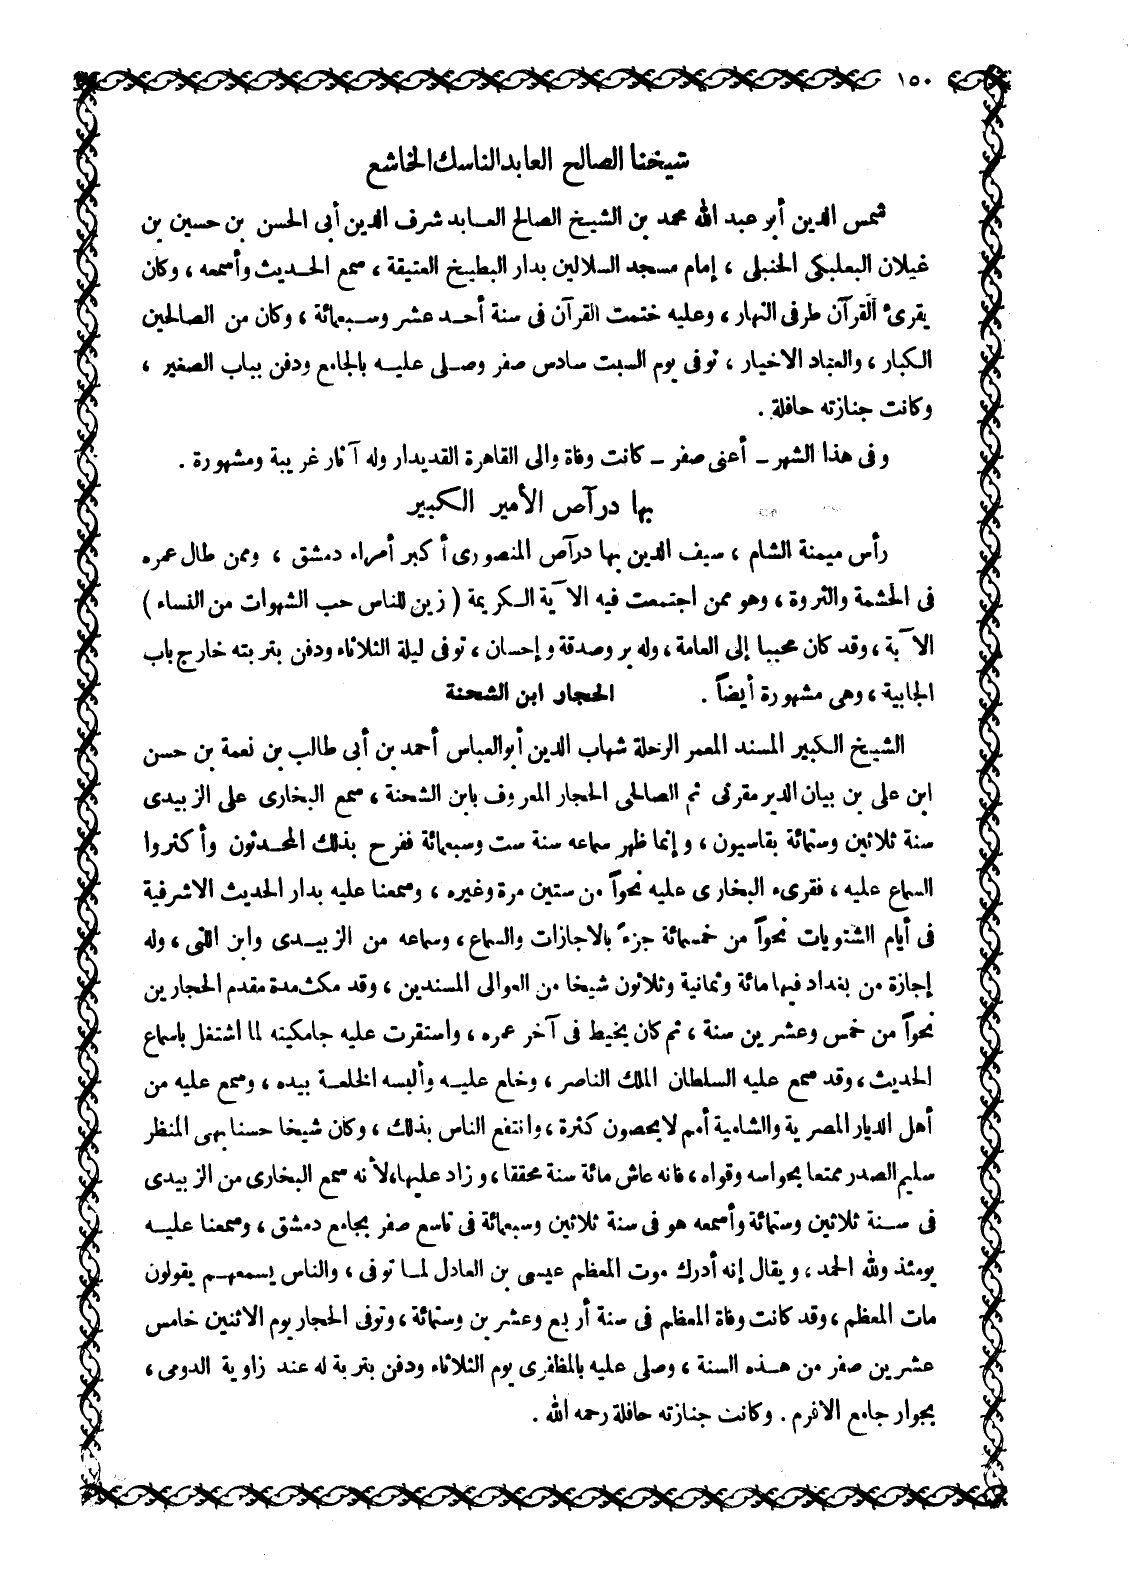 ١٥٠
شيخنا الصالح العابد الناسك الخاشع
شمس الدين أبو عبد الله محمد بن الشيخ الصالح العابد شرف الدين أبى الحسن بن حسين بن
غيلان البعلبكى الحنبلى ، إمام مسجد السلالين بدار البطيخ العتيقة ، سمع الحديث وأسمعه ، وكان
يقرئ القرآن طرفى النهار ، وعليه ختمت القرآن فى سنة أحد عشر وسبعمائة ، وكان من الصالحين
الكبار ، والعباد الاخيار ، توفى يوم السبت سادس صفر وصلى عليه بالجامع ودفن بباب الصغير ،
وكانت جنازته حافلة .
وفى هذا الشهر - أعنى صفر - كانت وفاة والى القاهرة القديدار وله آثار غريبة ومشهورة .
بهادرآص الأمير الكبير
رأس ميمنة الشام ، سيف الدين بهادرآص المنصورى أكبر أمراء دمشق ، وممن طال عمره
فى الحشمة والثروة ، وهو ممن اجتمعت فيه الآية الكريمة ( زين للناس حب الشهوات من النساء )
الآية ، وقد كان محببا إلى العامة ، وله بر وصدقة وإحسان ، توفى ليلة الثلاثاء ودفن بتربته خارج باب
الجابية ، وهى مشهورة أيضاً . الحجار ابن الشحنة
الشيخ الكبير المسند المعمر الرحلة شهاب الدين أبو العباس أحمد بن أبى طالب بن نعمة بن حسن
ابن على بن بيان الدير مقرنى ثم الصالحى الحجار المعروف بابن الشحنة ، سمع البخارى على الزبيدى
سنة ثلاثين وستمائة بقاسيون ، وإنما ظهر سماعه سنة ست وسبعمائة ففرح بذلك المحدثون وأكثروا
السماع عليه ، فقرىء البخارى عليه نحواً من ستين مرة وغيره ، وسمعنا عليه بدار الحديث الاشرفية
فى أيام الشتويات نحواً من خمسمائة جزء بالاجازات والسماع ، وسماعه من الزبيدى وابن اللتى ، وله
إجازة من بغداد فيها مائة وثمانية وثلاثون شيخا من العوالى المسندين ، وقد مكث مدة مقدم الحجارين
نحواً من خمس وعشرين سنة ، ثم كان يخيط فى آخر عمره ، واستقرت عليه جامكيته لما اشتغل باسماع
الحديث ، وقد سمع عليه السلطان الملك الناصر ، وخلع عليه وألبسه الخلعة بيده ، وسمع عليه من
أهل الديار المصرية والشامية أمم لا يحصون كثرة ، وانتفع الناس بذلك ، وكان شيخا حسنا بهى المنظر
سليم الصدر ممتعا بحواسه وقواه ، فانه عاش مائة سنة محققا ، وزاد عليها ، لأنه سمع البخارى من الزبيدى
فى سنة ثلاثين وستمائة وأسمعه هو فى سنة ثلاثين وسبعمائة فى تاسع صفر بجامع دمشق ، وسمعنا عليه
يومئذ ولله الحمد ، ويقال إنه أدرك موت المعظم عيسى بن العادل لما توفى ، والناس يسمعهم يقولون
مات المعظم ، وقد كانت وفاة المعظم فى سنة أربع وعشرين وستمائة ، وتوفى الحجار يوم الاثنين خامس
عشرين صفر من هذه السنة ، وصلى عليه بالمظفرى يوم الثلاثاء ودفن بتربة له عند زاوية الدومى ،
بجوار جامع الافرم . وكانت جنازته حافلة رحمه الله .